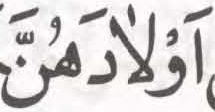 اَوْلَادَهُنَّ